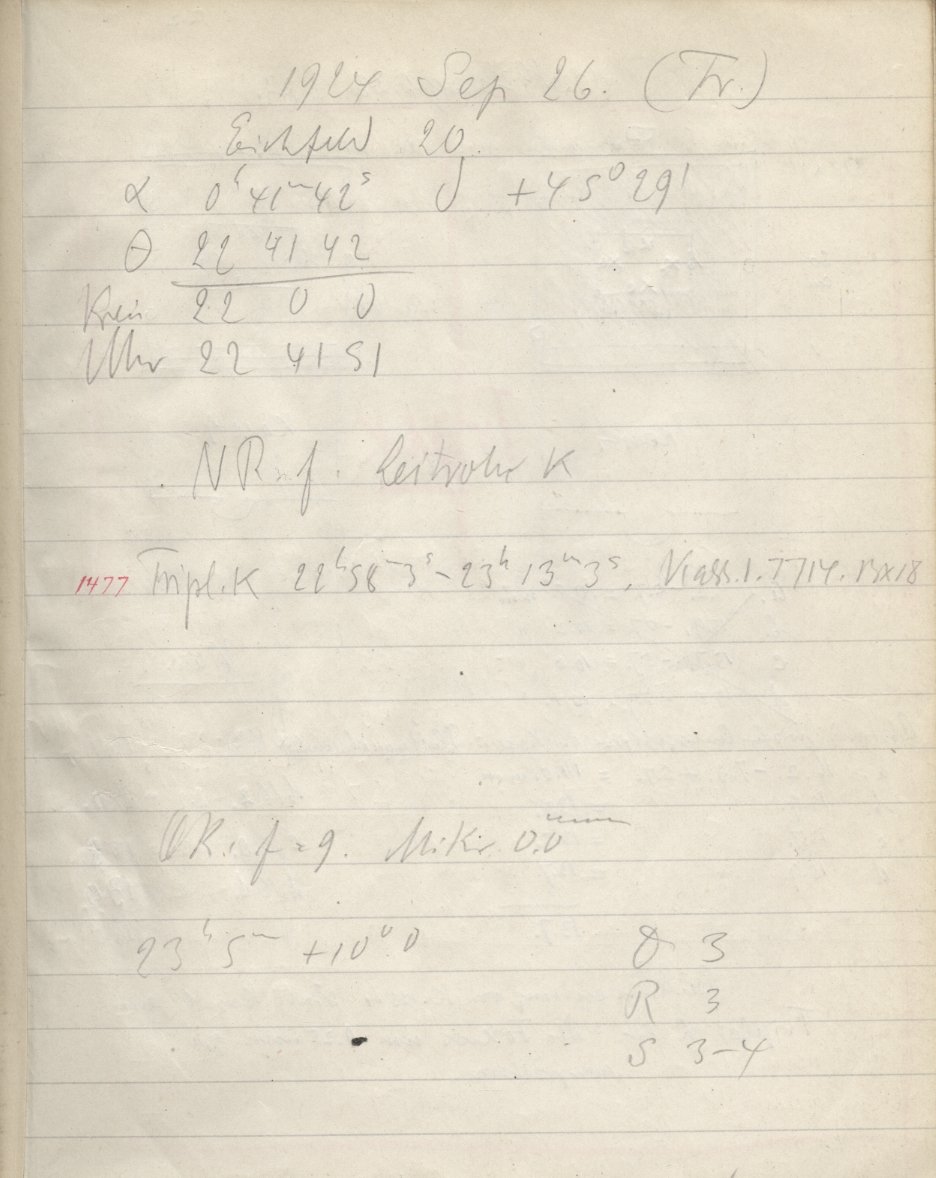 1924 Sep 26. (Fr.)
Eichfeld 20.
α 0ʰ 41ᵐ 42ˢ δ +45⁰ 29'
θ 22 41 42
Kreis 22 0 0
Uhr 22 41 51
NR. f. Leitrohr K
1477 Tripl. K 22ʰ 58ᵐ 3ˢ - 23ʰ 13ᵐ 3ˢ, 7714. 13x18
OR. f = 9. Mikr. 0.0
23ʰ 5ᵐ +10⁰ 0
D 3
R 3
S 3-4